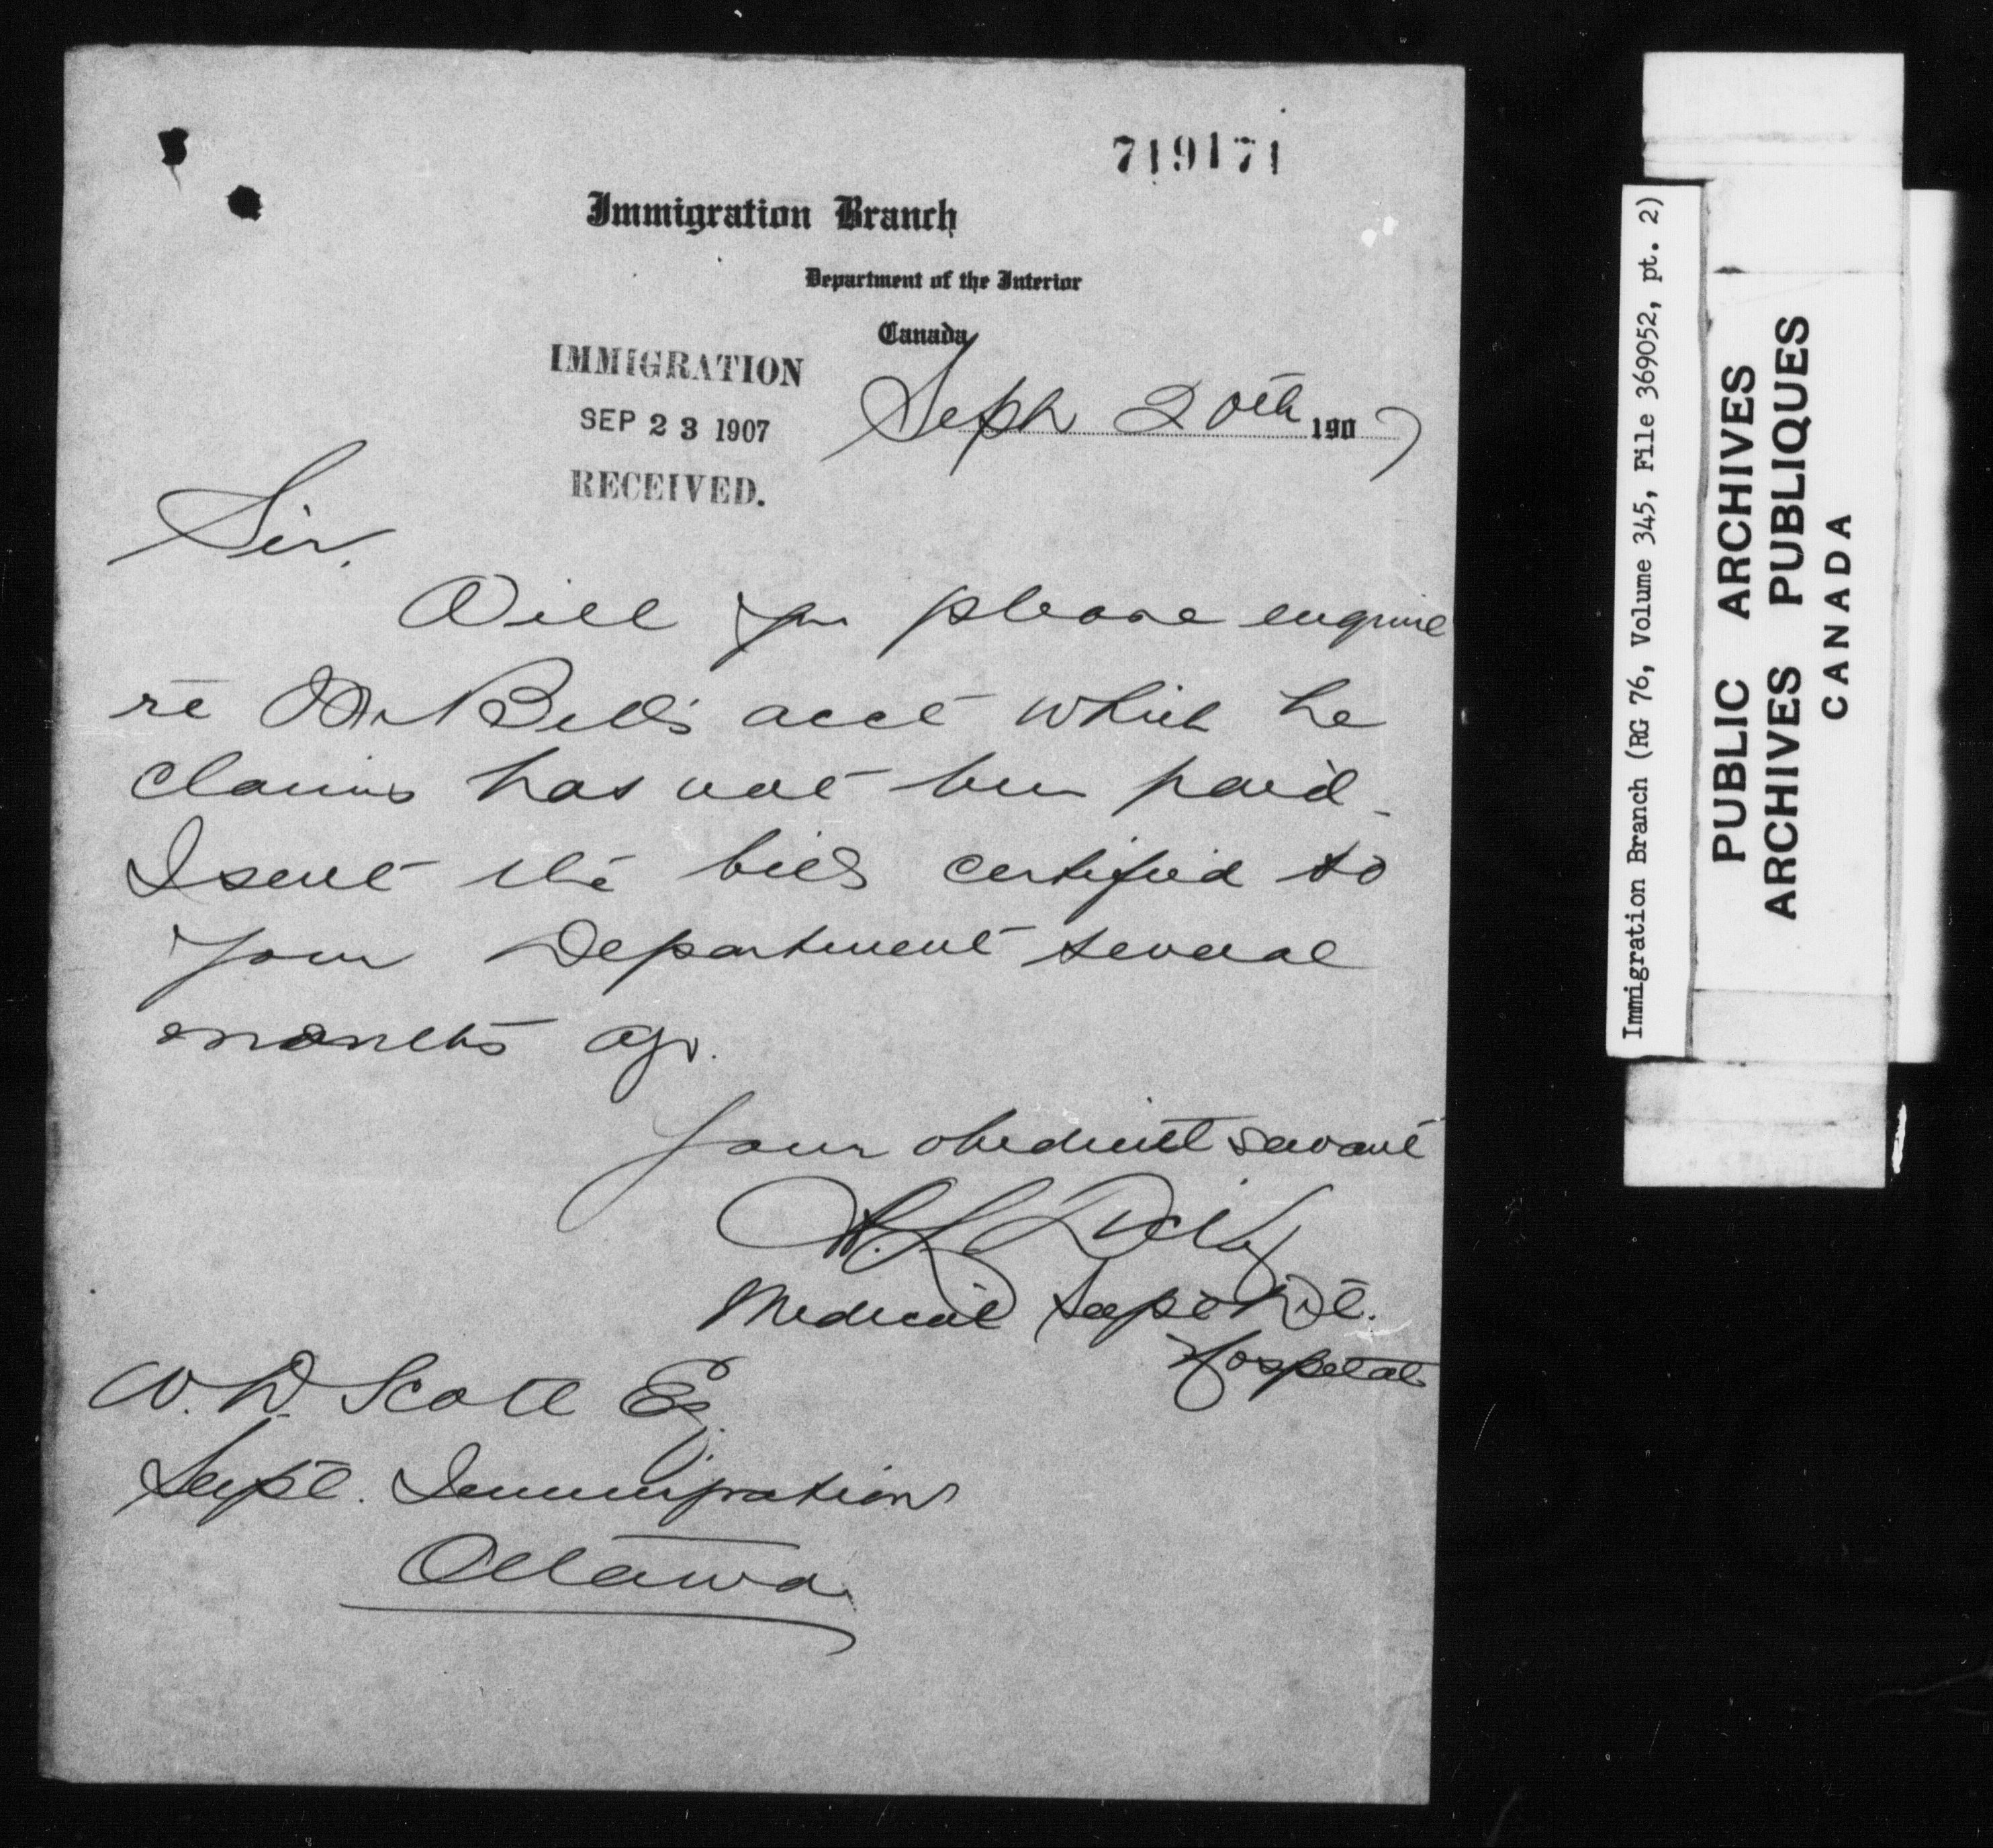 719171
Immigration Branch
Department of the Interior
Canada
IMMIGRATION
SEP 23 1907
RECEIVED.
Sept 20th 1907
Sir,
Will you please enquire
re Mr Bell's acct which he
claims has not been paid.
I sent the bill certified to
your Department several
months ago.
Your obedient servant
Medical Supt Det.
Hospital
W. D. Scott Esq.
Supt. Immigration
Ottawa
Immigration Branch (RG 76, Volume 345, File 369052, pt. 2)
PUBLIC ARCHIVES
ARCHIVES PUBLIQUES
CANADA